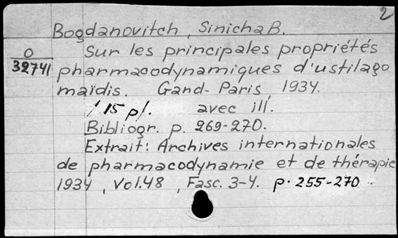 2
Bogdanovitch, Sinicha B.
O
32741
Sur les principales propriétés
pharmacodynamiques d'ustilago
maïdis. Gand-Paris, 1934.
15 p/. avec ill.
Bibliogr. p. 269-270.
Extrait: Archives internationales
de pharmacodynamie et de thérapie
1934, Vol.48, Fasc. 3-4. p. 255-270.